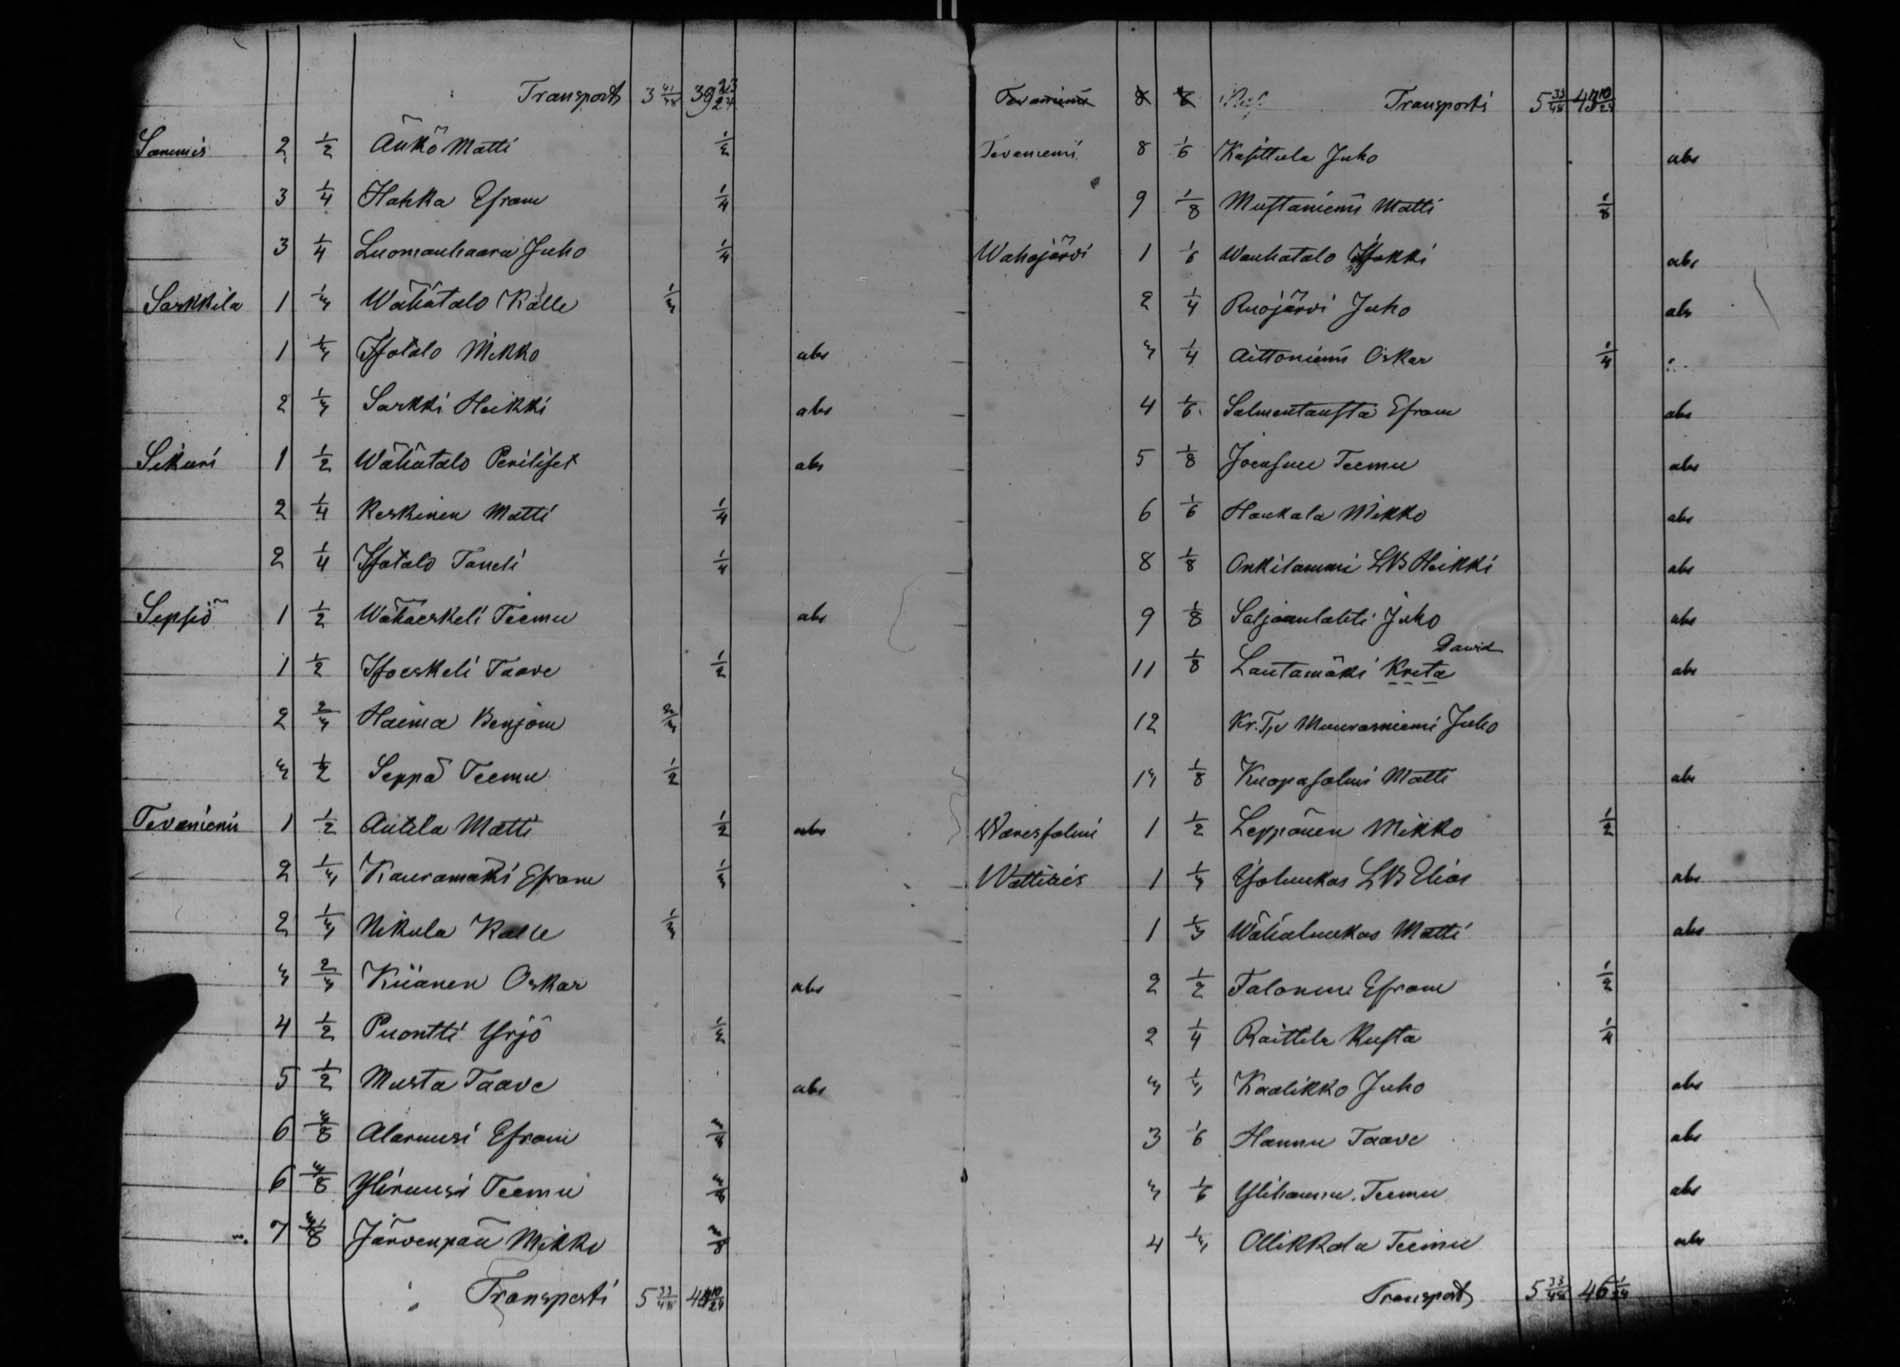 Transport 3 41/48 39 23/24
Sammi 2 1/2 Äükö Matti 1/2
3 1/4 Hahka Efram 1/4
3 1/4 Luomanhaara Juho 1/4
Sarkkila 1 1/3 Wähätalo Kalle 1/3
1 1/3 Isotalo Mikko abs
2 1/3 Sarkki Heikki abs
Sikuri 1 1/2 Wähätalo abs
2 1/4 Keskinen Matti 1/4
2 1/4 Isotalo Taneli 1/4
Seppö 1 1/2 Wähäeskeli Teemu abs
1 1/2 Isoeskeli Taave 1/2
2 2/3 Haima Benjam 2/3
3 1/2 Seppä Teemu 1/2
Tevaniemi 1 1/2 Antila Matti 1/2 abs
2 1/3 Kauramäki Efram 1/3
2 1/3 Nikula Kalle 1/3
3 2/3 Kiianen Oskar abs
4 1/2 Puontti Yrjö 1/2
5 1/2 Musta Taave abs
6 3/8 Alaruusi Efram 3/8
6 3/8 Yliruusi Teemu 3/8
7 3/8 Järvenpää Mikko 3/8
Transporti 5 33/48 43 10/24
Tevaniemi 8 1/6 Transporti 5 33/48 43 10/24
Tevaniemi 8 1/6 Kasittula Juho abs
9 1/8 Mustaniemi Matti 1/8
Wahojärvi 1 1/6 Wanhatalo Jaakki abs
2 1/4 Ruojärvi Juho abs
3 1/4 Aittoniemi Oskar 1/4
4 1/6 Salmentausta Efram abs
5 1/8 Joensuu Teemu abs
6 1/6 Haukala Mikko abs
8 1/8 Onkilammi LB Heikki abs
9 1/8 Saljaanlahti Juho abs
David
11 1/8 Lautamäki Kreta abs
12 Kr.Tp Muurasniemi Juho
13 1/8 Kuopasalmi Matti abs
Waressalmi 1 1/2 Leppänen Mikko 1/2
Wattikis 1 1/3 Isoluukas LB Elias abs
1 1/3 Wähäluukas Matti abs
2 1/2 Talonen Efram 1/2
2 1/4 Raittila Kusta 1/4
3 1/3 Kaalikko Juho abs
3 1/6 Hannu Taave abs
3 1/6 Ylihannu Teemu abs
4 1/3 Ollikkala Teemu abs
Transport 5 33/48 46 1/24